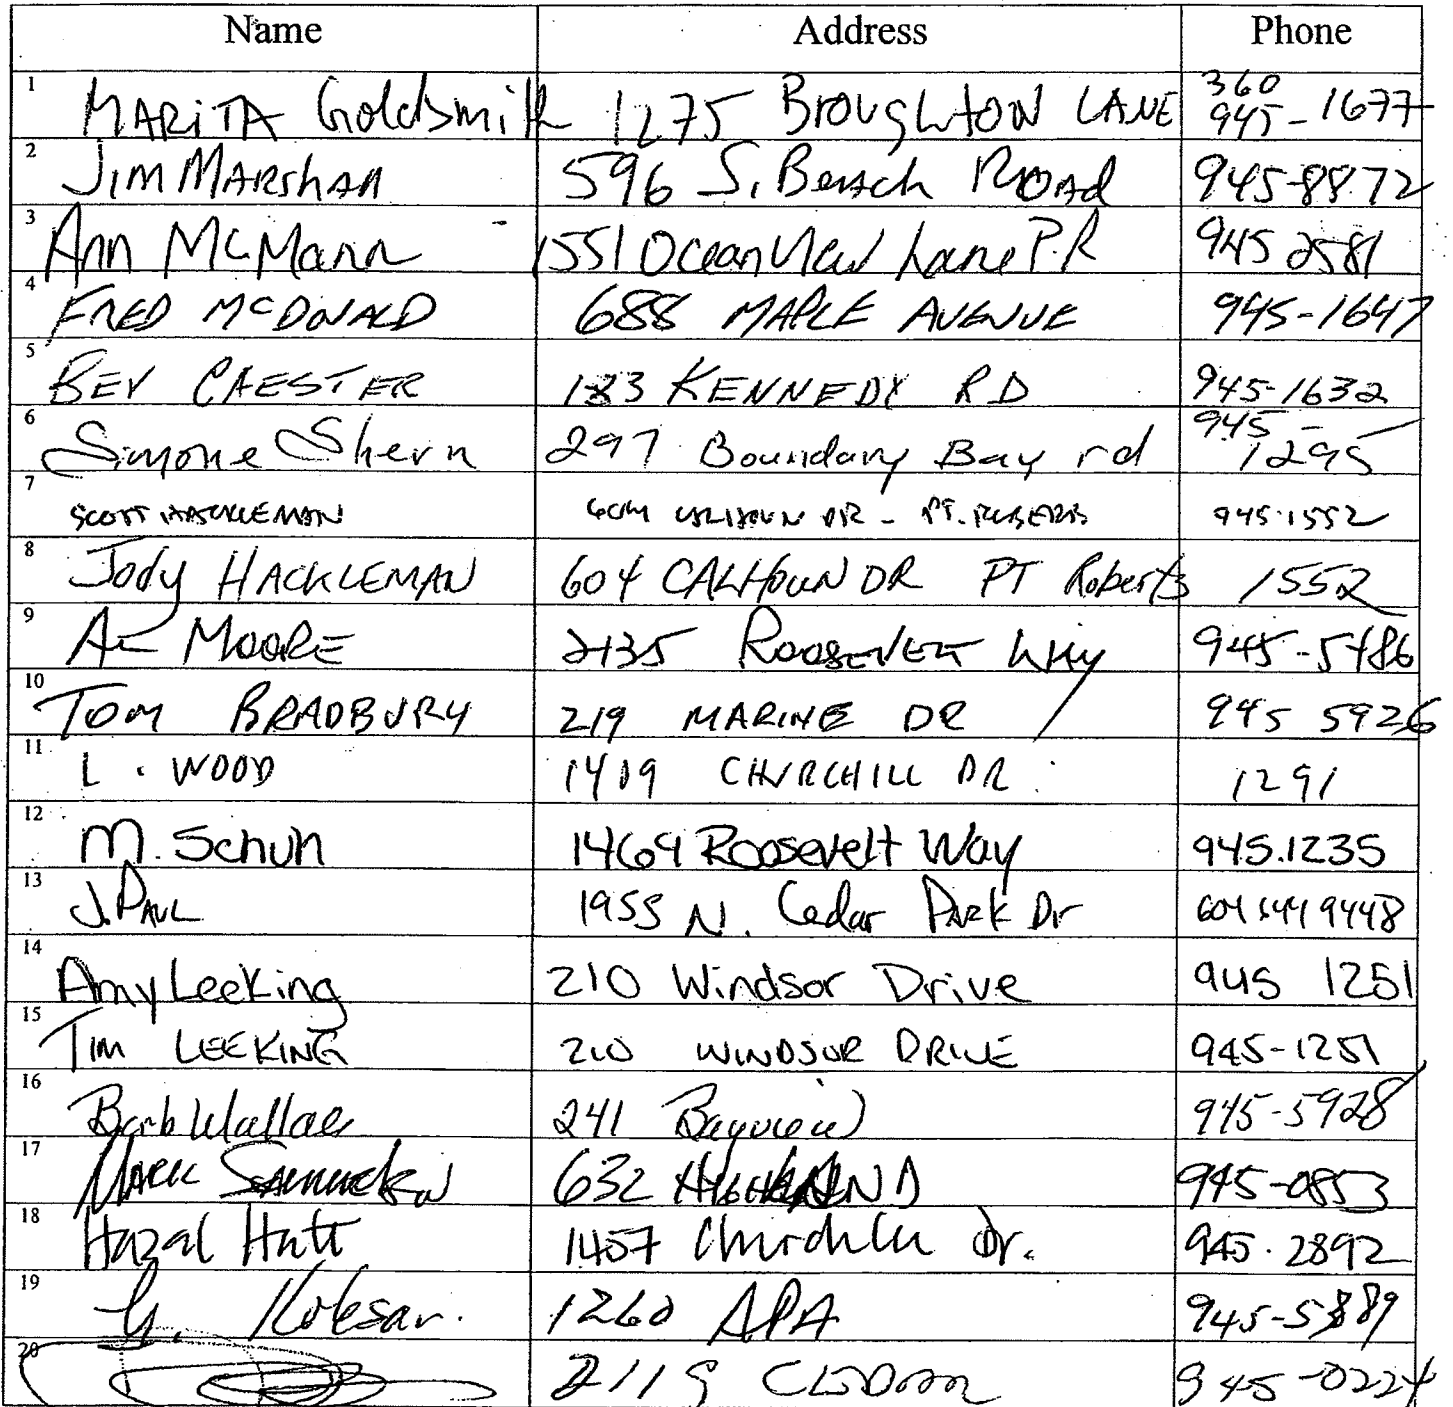 Name Address Phone
1 MARITA Goldsmith 1275 BROUGHTON LANE 360 945-1677
2 JIM MARSHALL 596 S. Beach ROAD 945-8872
3 Ann McMann 1551 Ocean View Lane P.R 945 2581
4 FRED McDONALD 688 MAPLE AVENUE 945-1647
5 BEV CAESTER 183 KENNEDY RD 945-1632
6 Simone Shern 297 Boundary Bay rd 945-1295
7 SCOTT HACKLEMAN 604 CALHOUN DR - PT. ROBERTS 945-1552
8 Jody HACKLEMAN 604 CALHOUN DR PT Roberts 1552
9 MOORE 2135 ROOSEVELT WAY 945-5486
10 TOM BRADBURY 219 MARINE DR 945 5926
11 L. WOOD 1419 CHURCHILL DR. 1291
12 M. Schuh 1469 Roosevelt Way 945.1235
13 J. PAUL 1955 N. Cedar PARK Dr 604 9448
14 Amy Leeking 210 Windsor Drive 945 1251
15 TIM LEEKING 210 WINDSOR DRIVE 945-1251
16 Barb Wallace 241 Bayview 945-5928
17 MARK 632 HIGHLAND 945-0853
18 Hazal Hatt 1457 Churchill Dr. 945.2892
19 G. Kolesar. 1260 APA 945-5889
20 2119 945-0224